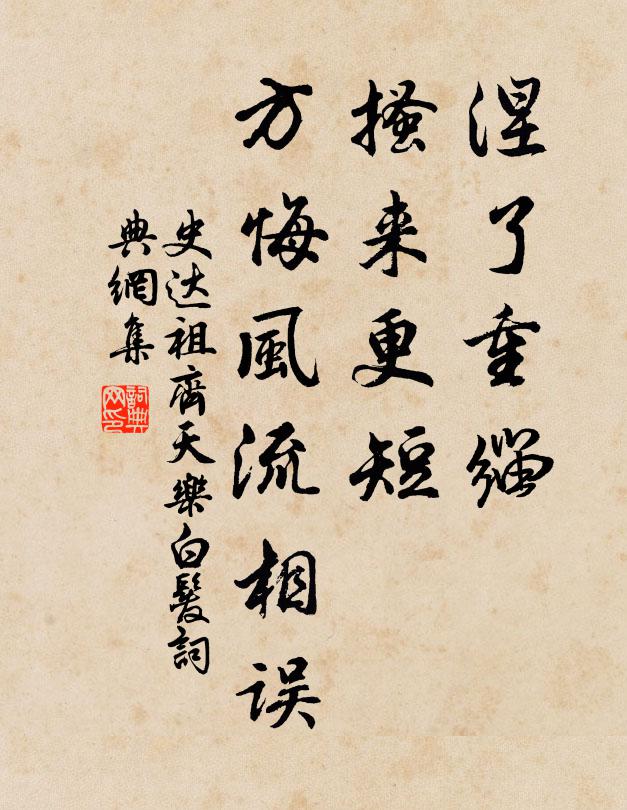 涅了重缁
搔来更短
方悔風流相误
史达祖齊天樂白髮詞
典網集
詞典
网印